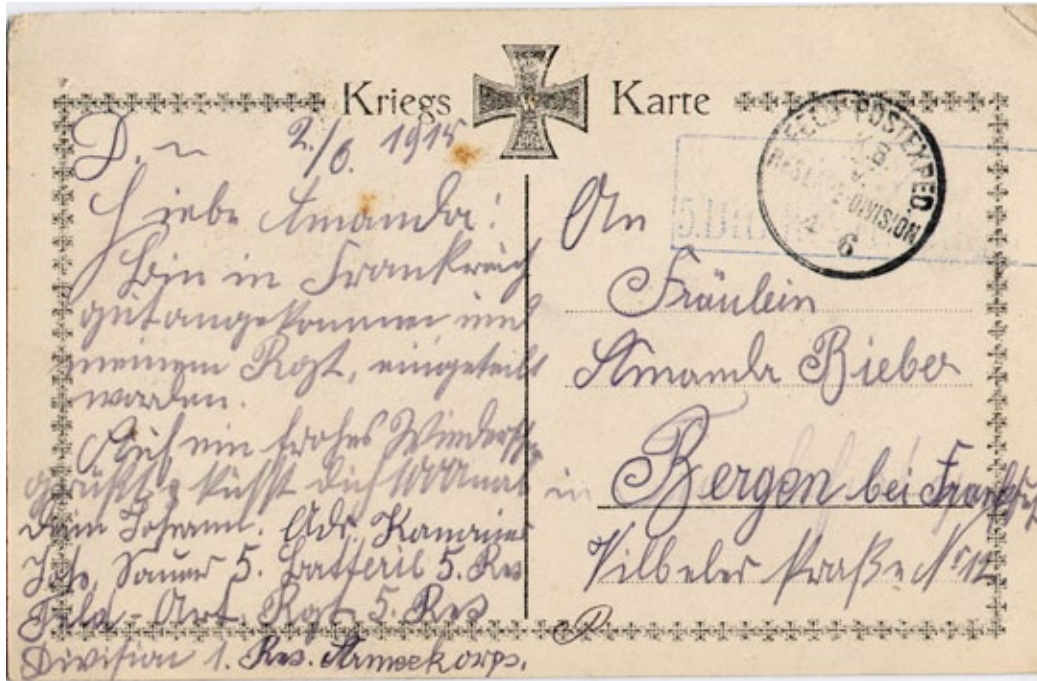 Kriegs Karte
2./6. 1915
Liebe Amanda!
Bin in Frankreich
gut angekommen und
meinem Rgt. eingeteilt
worden.
Auf ein frohes Wiederseh
grüßt u küßt dich 1000mal
dein Johann. Adr. Kanonier
Joh. Sauer 5. Batterie 5. Res
Feld-Art. Rgt. 5. Res
Division 1. Res. Armeekorps.
FELD-POSTEXPED.
RESERVE-DIVISION
6
An
Fräulein
Amanda Bieber
in Bergen bei Frankfurt
Vilbeler Straße Nr 12